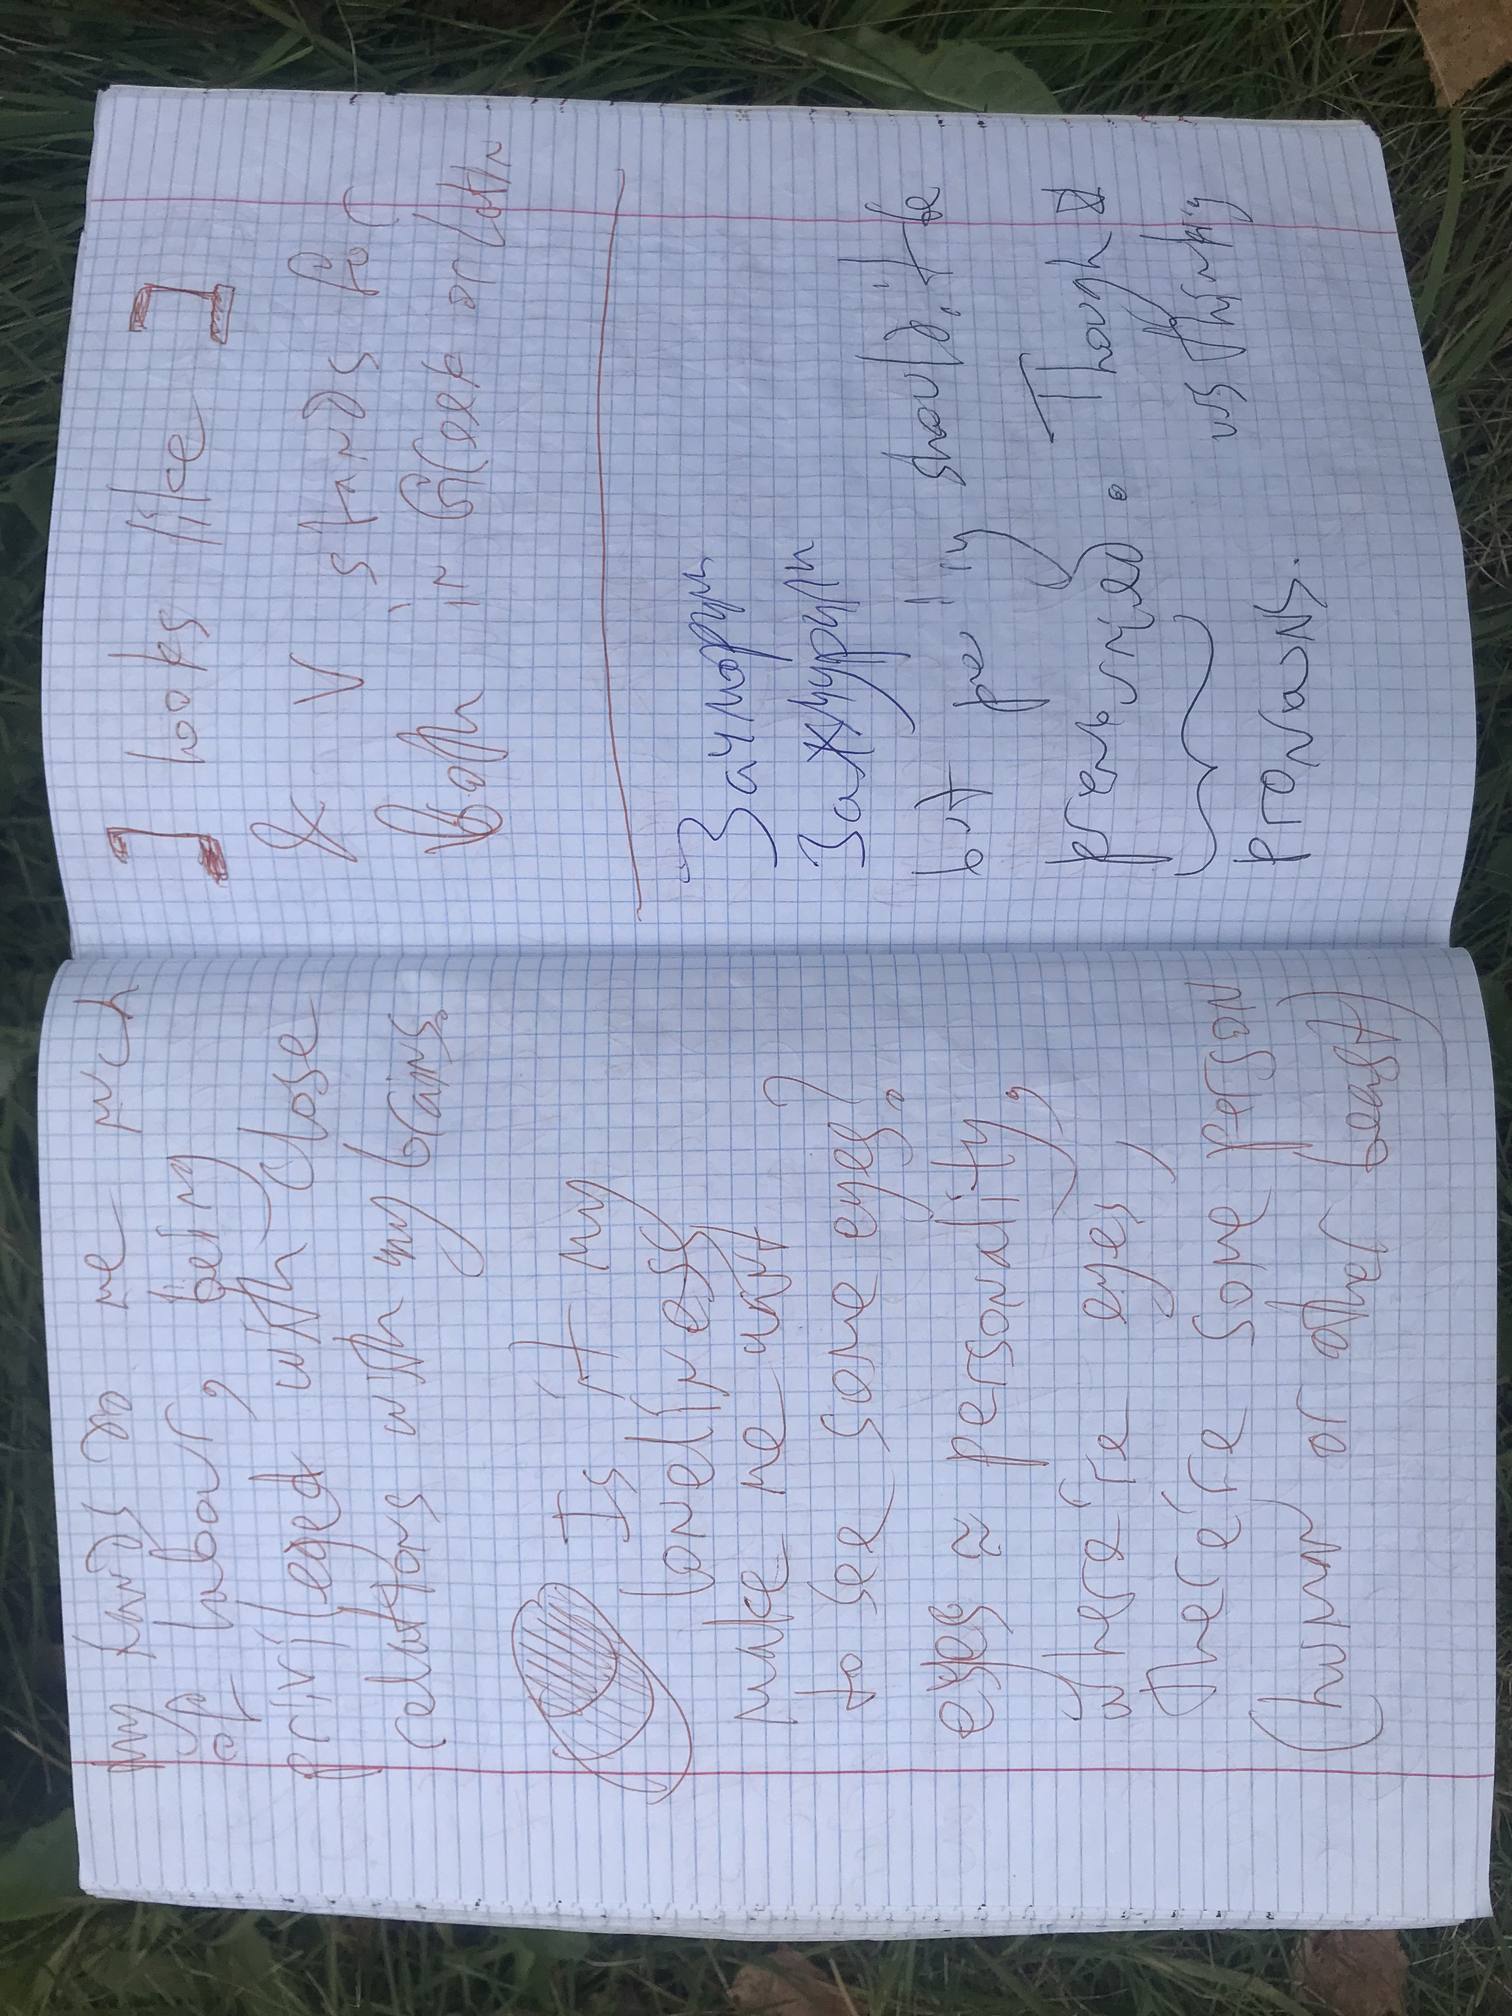 my hands do me much
of labour, being
privileged with close
relations with my brains.
Is it my
loneliness
make me want
to see some eyes?
eyes ≈ personality,
where're eyes,
there're some person
(human or other beast)
] looks like ]
& V stands for
both in Greek or Latin
Зачмори
Зажмурили
but pe'ny should'it be
preserved. Though
us thinking
pronouns.